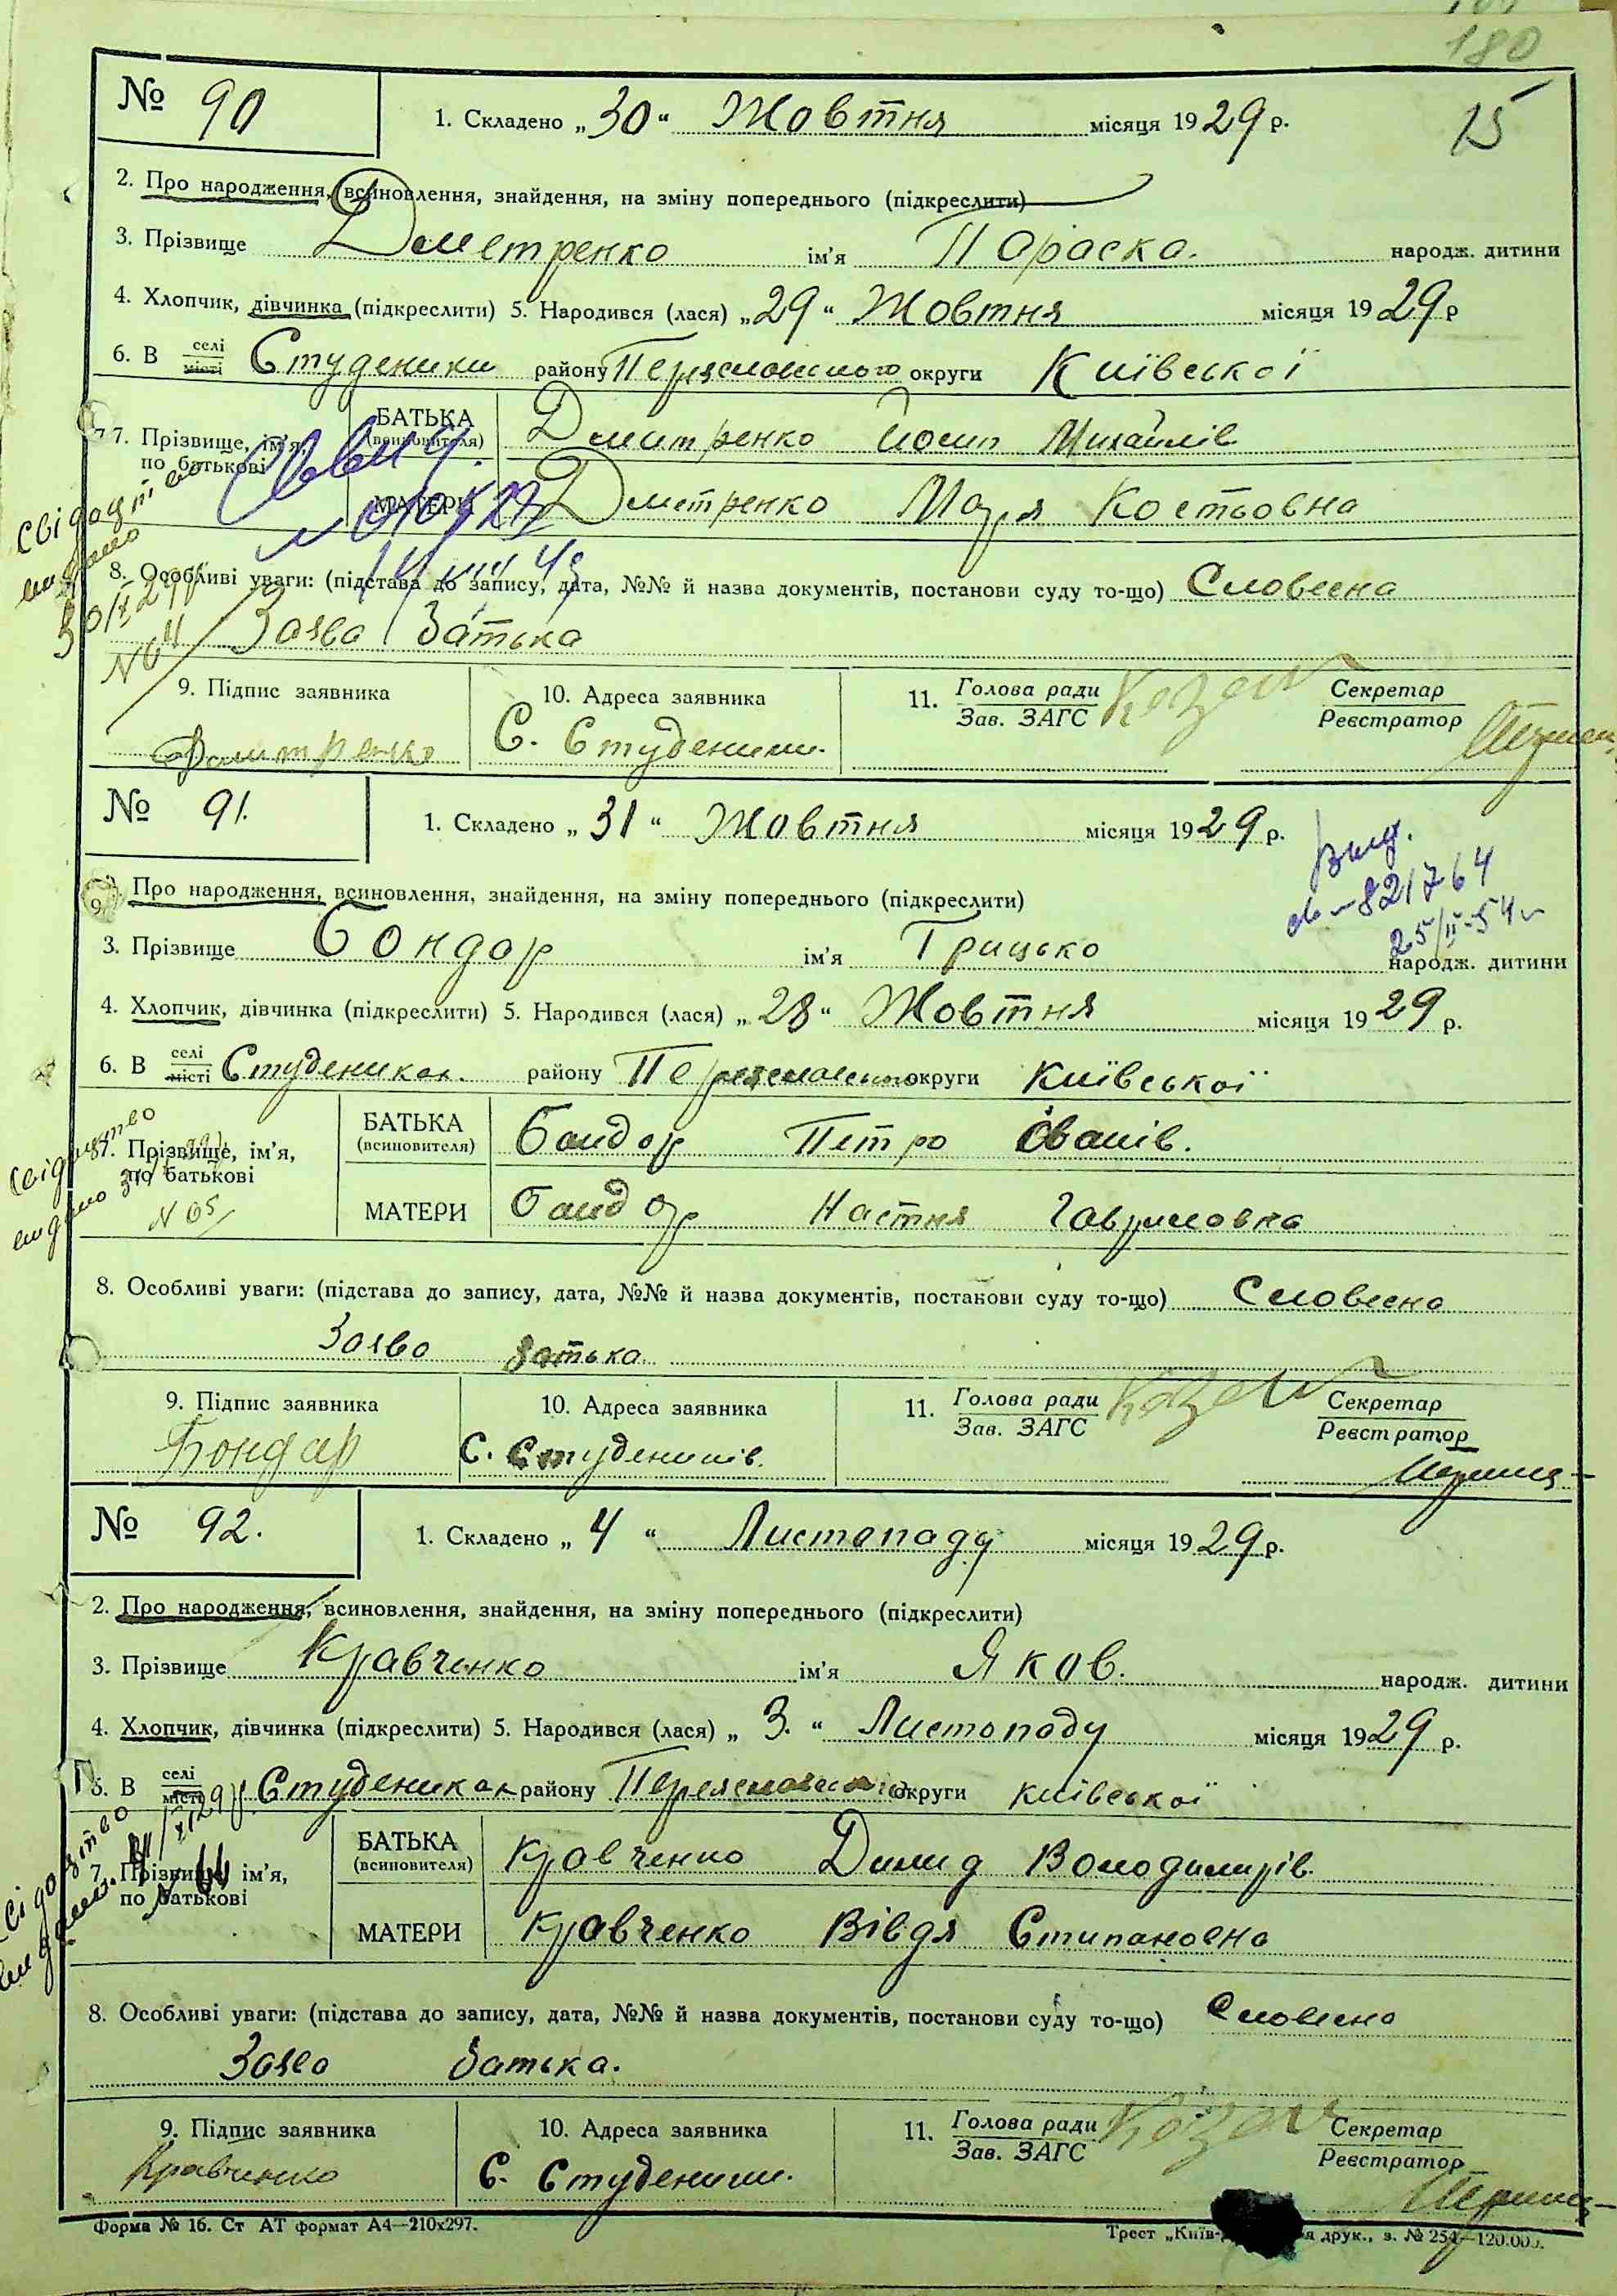 180
№ 90
1. Складено „30“ Жовтня місяця 1929 р.
15
2. Про народження, всиновлення, знайдення, на зміну попереднього (підкреслити)
3. Прізвище Дметренко ім'я Параска. народж. дитини
4. Хлопчик, дівчинка (підкреслити) 5. Народився (лася) „29“ Жовтня місяця 1929 р
6. В селі місті Студеники району округи Київської
7. Прізвище, ім'я, по батькові
БАТЬКА (всиновителя) Дмитренко Йосип Михайлів
МАТЕРИ Дметренко Марія Костьовна
8. Особливі уваги: (підстава до запису, дата, №№ й назва документів, постанови суду то-що) Словесна
Заява батька
9. Підпис заявника
10. Адреса заявника
11. Голова ради Зав. ЗАГС
Секретар Реєстратор
Дмитренко
С. Студеники.
№ 91.
1. Складено „31“ Жовтня місяця 1929 р.
Вид.
821764
25/II-54
2. Про народження, всиновлення, знайдення, на зміну попереднього (підкреслити)
3. Прізвище Бондар ім'я Грицько народж. дитини
4. Хлопчик, дівчинка (підкреслити) 5. Народився (лася) „28“ Жовтня місяця 1929 р.
6. В селі місті Студениках. району округи Київської
7. Прізвище, ім'я, по батькові
БАТЬКА (всиновителя) Бондар Петро Іванів.
МАТЕРИ Бондар Настня Гавриловна
№ 65
8. Особливі уваги: (підстава до запису, дата, №№ й назва документів, постанови суду то-що) Словесна
Заява батька.
9. Підпис заявника
10. Адреса заявника
11. Голова ради Зав. ЗАГС
Секретар Реєстратор
Бондар
С. Студеників.
№ 92.
1. Складено „4“ Листопаду місяця 1929 р.
2. Про народження, всиновлення, знайдення, на зміну попереднього (підкреслити)
3. Прізвище Кравченко ім'я Яков. народж. дитини
4. Хлопчик, дівчинка (підкреслити) 5. Народився (лася) „3.“ Листопаду місяця 1929 р.
6. В селі місті Студениках району округи Київської
7. Прізвище, ім'я, по батькові
БАТЬКА (всиновителя) Кравченко Демид Володимирів.
МАТЕРИ Кравченко Вівдя Стипановна
8. Особливі уваги: (підстава до запису, дата, №№ й назва документів, постанови суду то-що) Словесна
Заява батька.
9. Підпис заявника
10. Адреса заявника
11. Голова ради Зав. ЗАГС
Секретар Реєстратор
Кравченко
С. Студеники.
Форма № 16. Ст АТ формат А4—210х297.
Трест „Київ- друк., з. № 254—120.000.